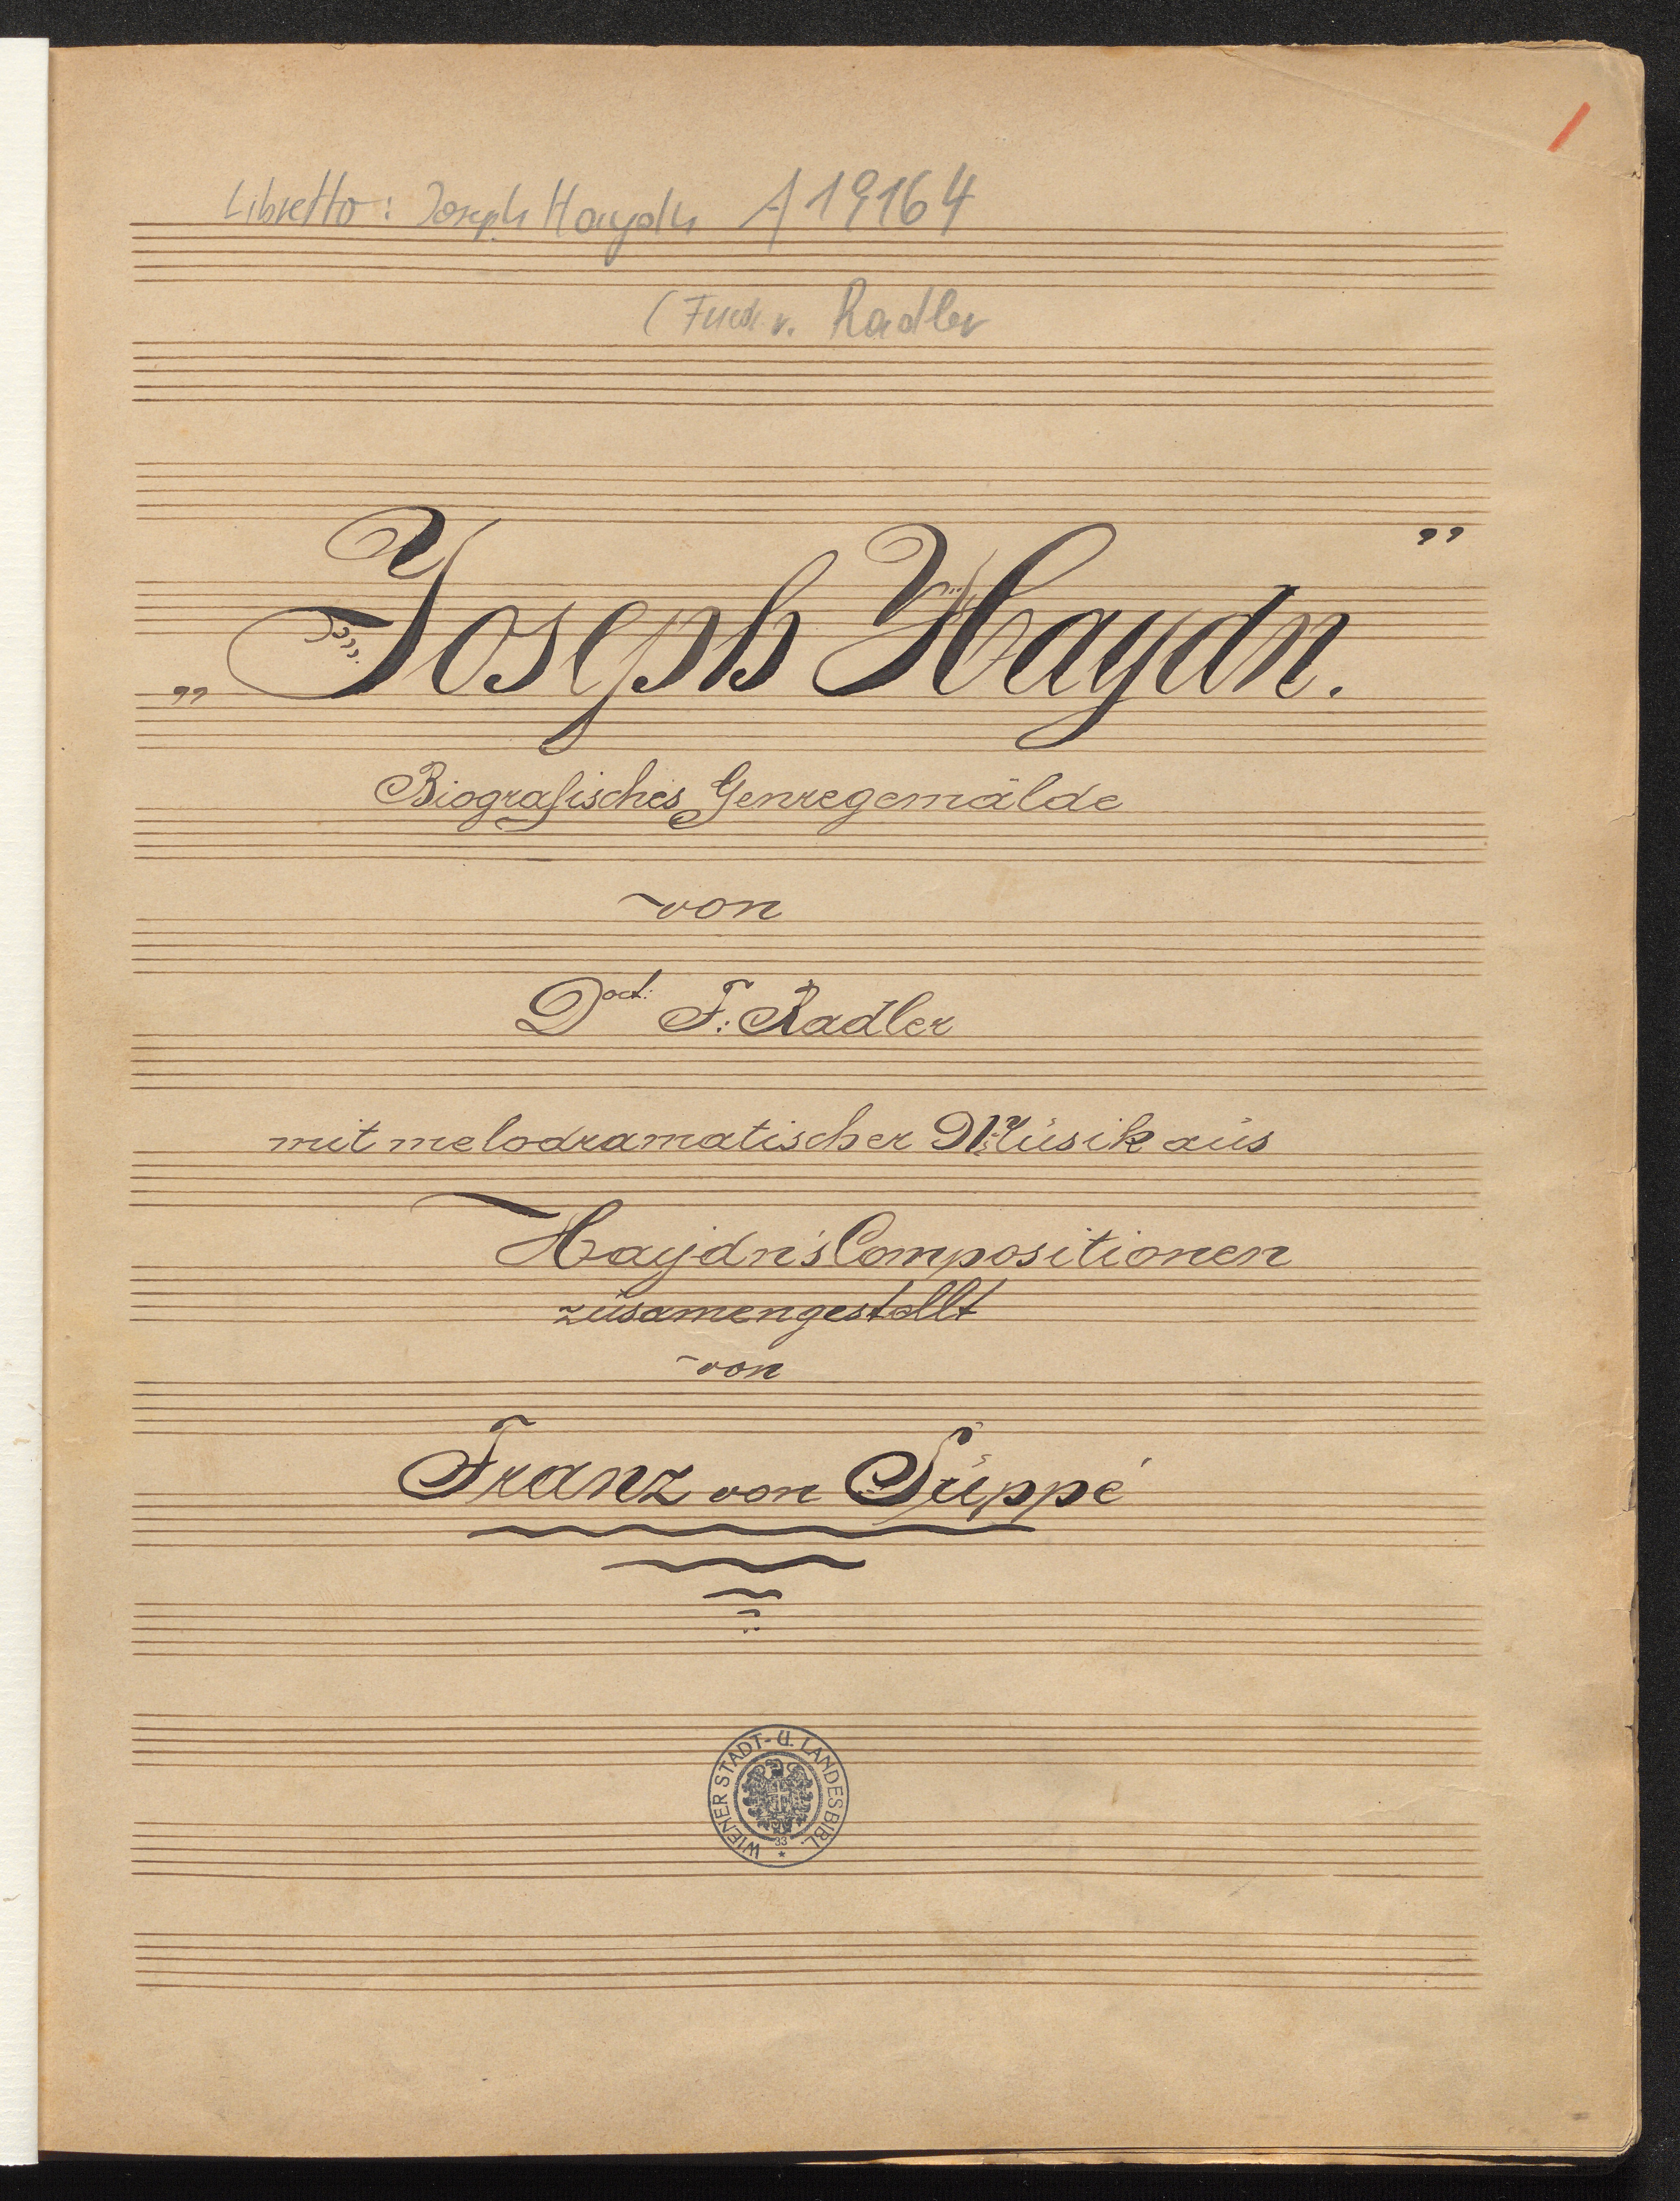 Libretto: Joseph Haydn A 19164
(Friedr. v. Radler
„Joseph Haydn."
Biografisches Genregemälde
von
Doct: F: Radler
mit melodramatischer Musik aus
Haydn's Compositionen
zusamengestellt
von
Franz von Suppé
WIENER STADT- U. LANDESBIBL.
33